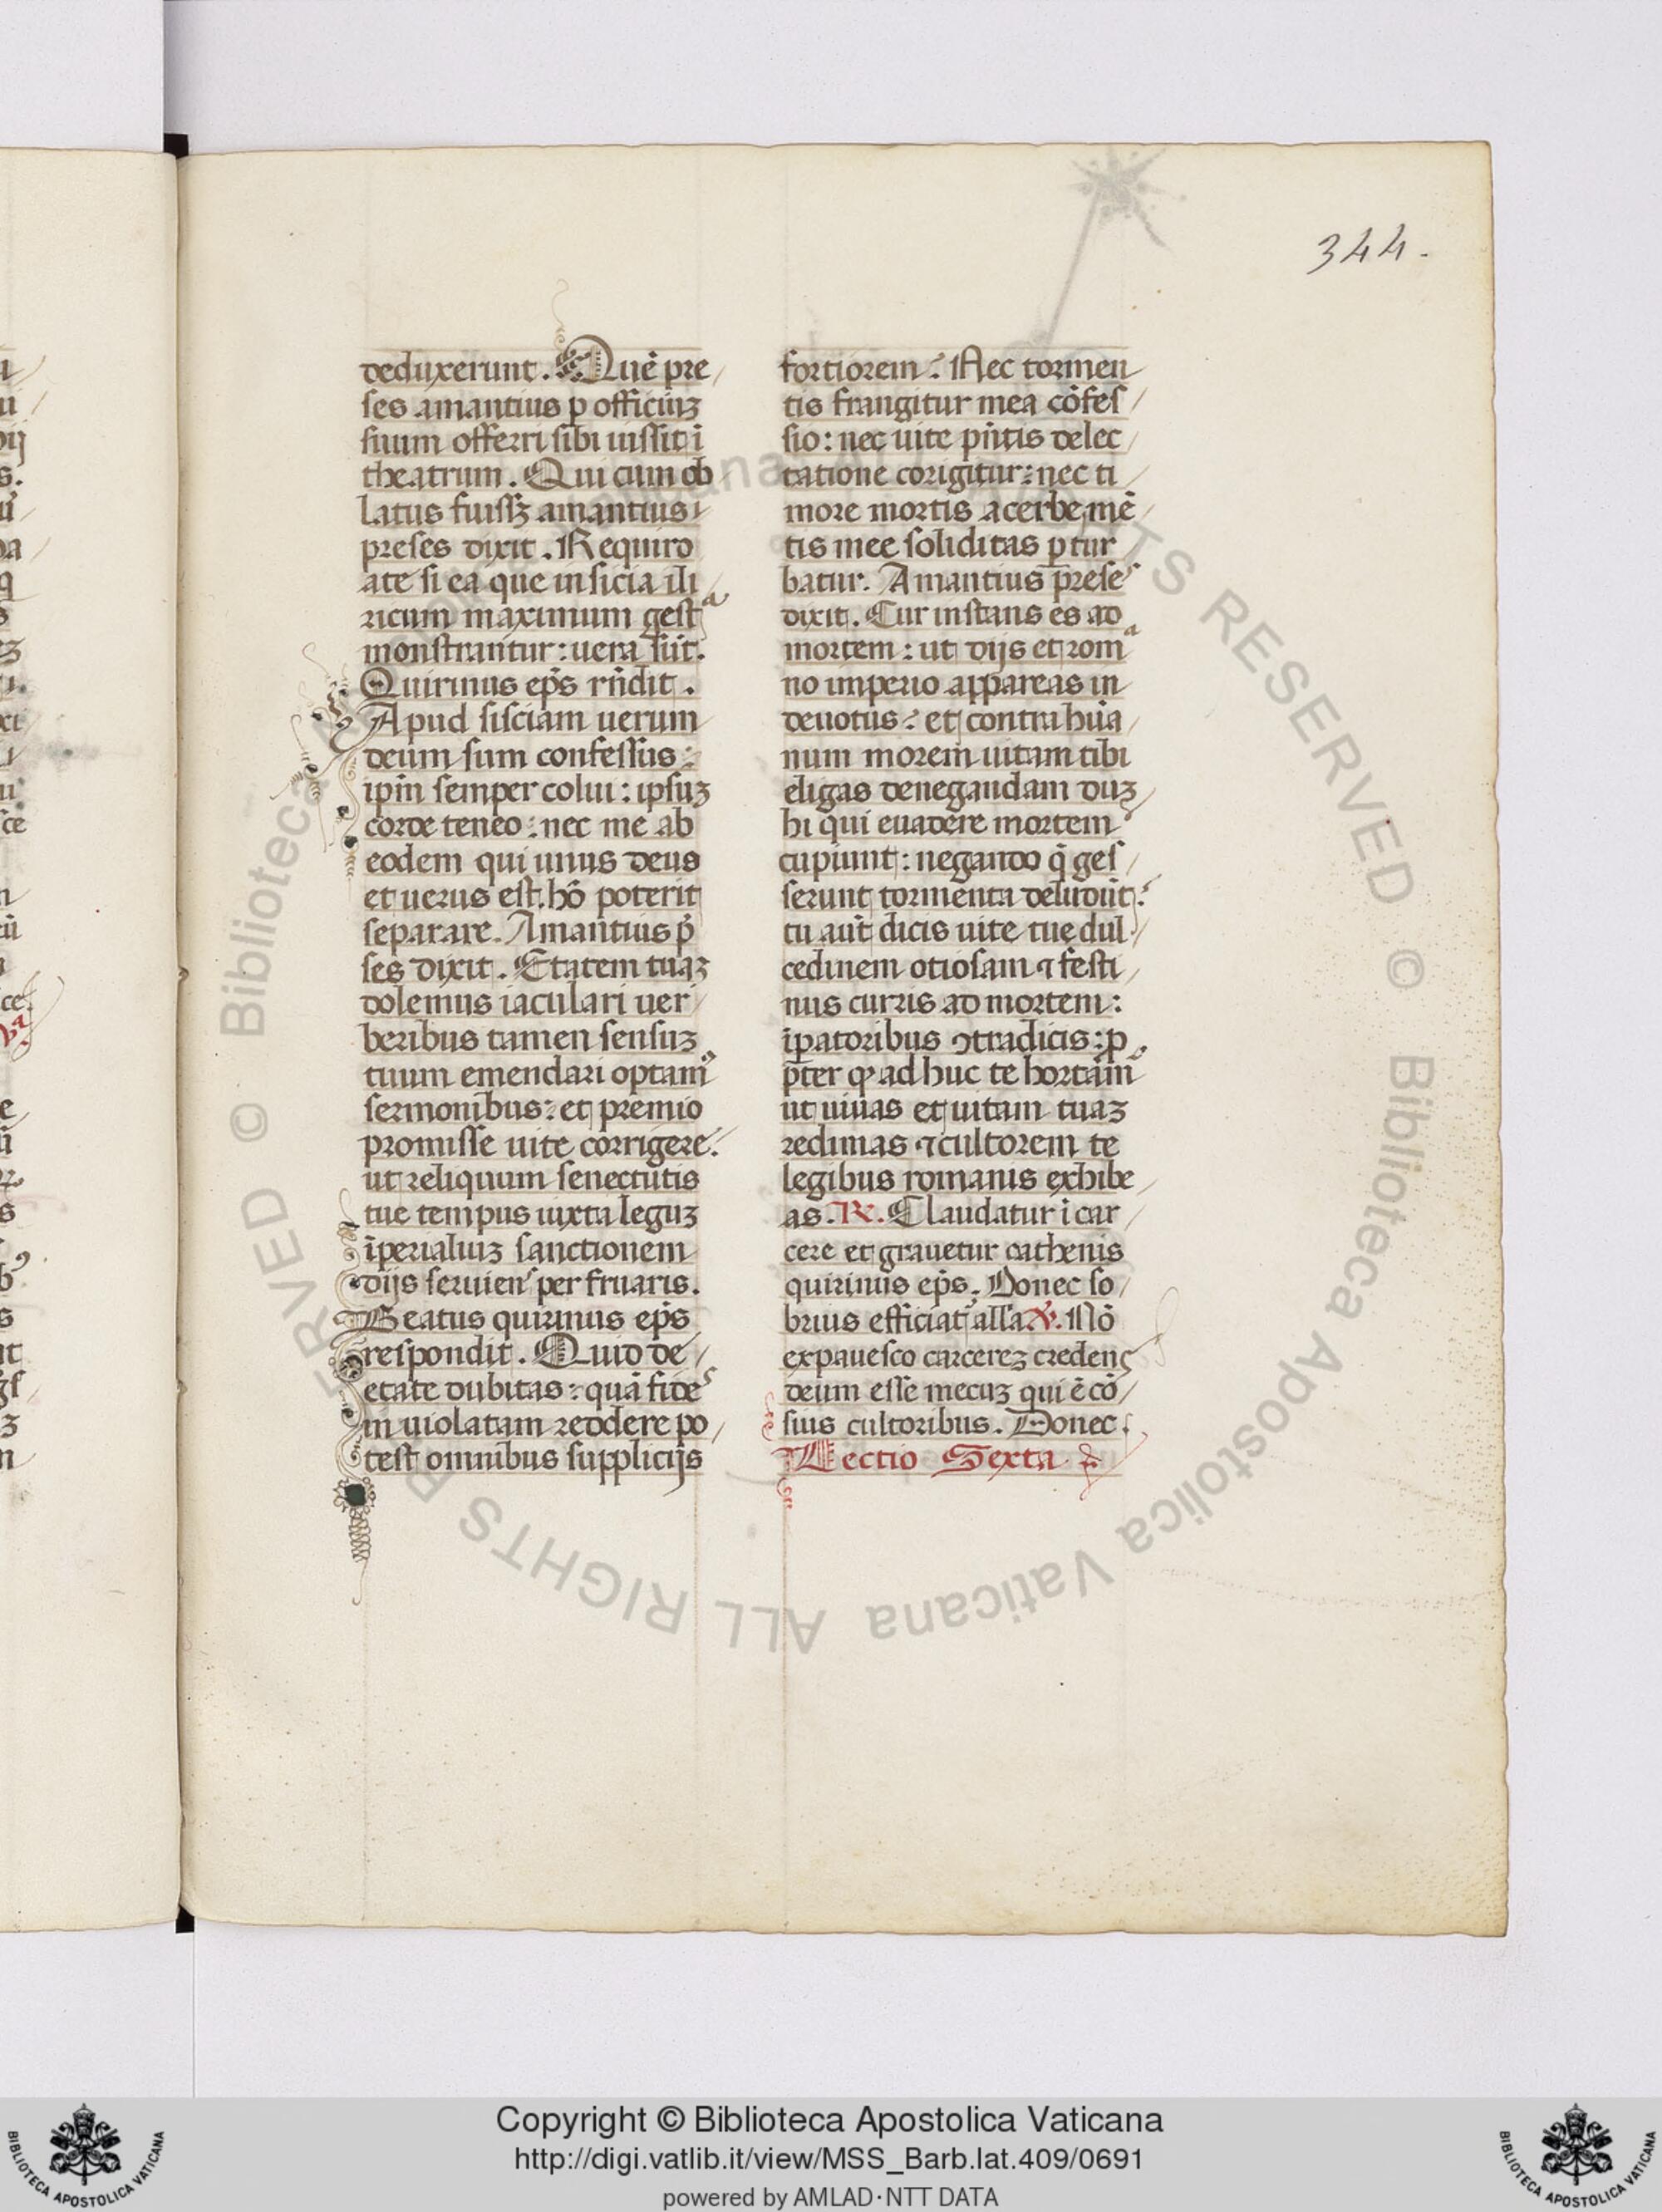 344.
deduxerunt. Quē pre/
ses amantius ꝑ officiūꝫ
suum offerri sibi iussit ī
theatrum. Qui cum ob
latus fuissꝫ amantius
preses dixit. Requiro
ate si ea que in sicia ili
ricum maximum gestᵃ
monstrantur: uera sūt.
Quirinus ep̄s rn̄dit.
Apud sisciam uerum
deum sum confessus:
ip̄m semper colui: ipsuꝫ
corde teneo: nec me ab
eodem qui unus deus
et uerus est. hō poterit
separare. Amantius p̄
ses dixit. Etatem tuaꝫ
dolemus iaculari uer/
beribus tamen sensuꝫ
tuum emendari optamꝰ
sermonibus: et premio
promisse uite corrigere:
ut reliquum senectutis
tue tempus iuxta leguꝫ
īperialiuꝫ sanctionem
dijs seruiens perfruaris.
Beatus quirinus ep̄s
respondit. Quid de/
etate dubitas: quā fides
in uiolatam reddere po/
test omnibus supplicijs
fortiorem? Nec tormen
tis frangitur mea cōfes/
sio: nec uite pn̄tis delec/
tatione corigitur: nec ti/
more mortis acerbe mē/
tis mee soliditas ꝑtur
batur. Amantius preses
dixit. Cur instans es ad
mortem: ut dijs et romᵃ
no imperio appareas in
deuotus: et contra hūa/
num morem uitam tibi
eligas denegandam duꝫ
hi qui euadere mortem
cupiunt: negando q̄ ges/
serunt tormenta deludūt:
tu aūt dicis uite tue dul/
cedinem otiosam ⁊ festi/
nus curris ad mortem:
īpatoribus ꝯtradicis: ꝓ
pter qꝫ adhuc te hortamꝰ
ut uiuas et uitam tuaꝫ
redimas ⁊ cultorem te
legibus romanis exhibe/
as. ℟. Claudatur ī car/
cere et grauetur cathenis
quirinus ep̄s. Donec so/
brius efficiat᷑ alla ℣. Nō
expauesco carcereꝫ credens
deum esse mecuꝫ qui ē cō/
suis cultoribus. Donec.
Lectio Sexta
© Biblioteca Apostolica Vaticana ALL RIGHTS RESERVED
Copyright © Biblioteca Apostolica Vaticana
http://digi.vatlib.it/view/MSS_Barb.lat.409/0691
powered by AMLAD·NTT DATA
BIBLIOTECA APOSTOLICA VATICANA
BIBLIOTECA APOSTOLICA VATICANA